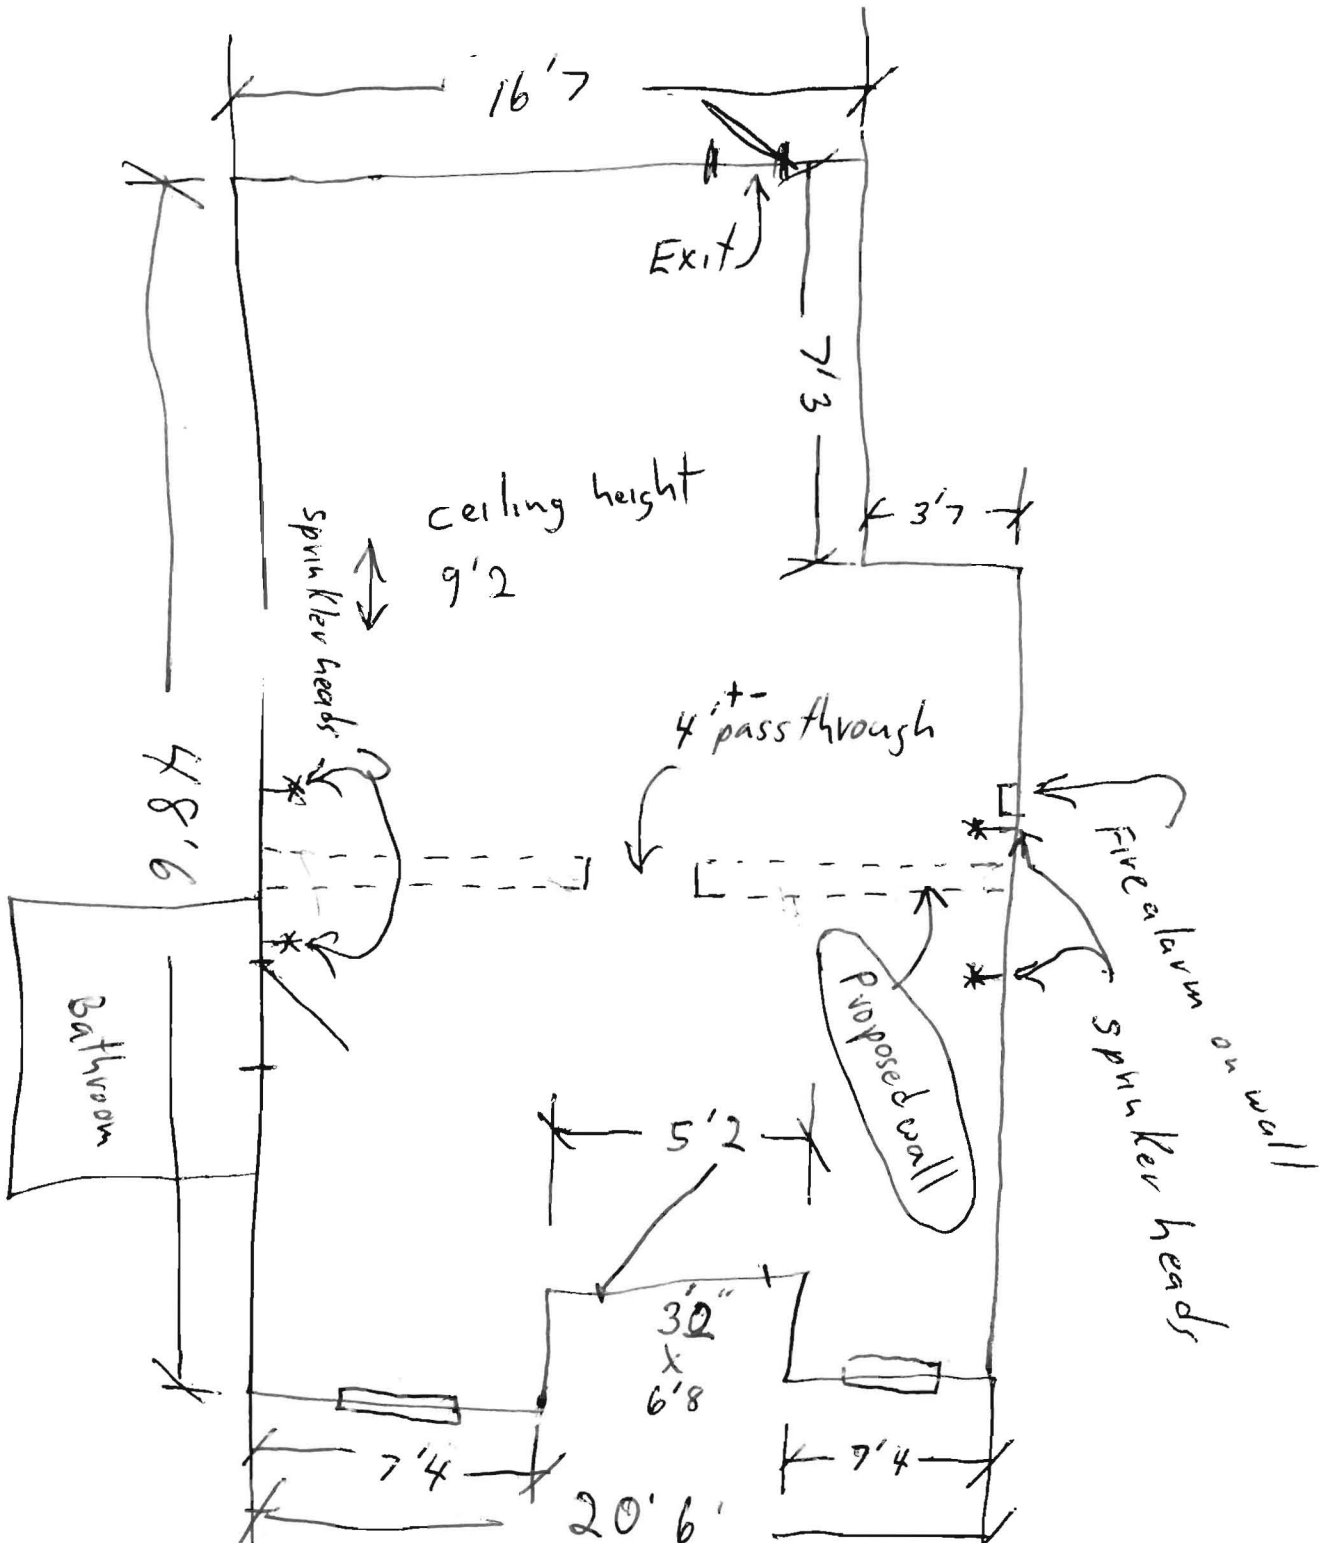 16'7
Exit
7'3
3'7
ceiling height
9'2
sprinkler heads
4'+- passthrough
48'6
Fire alarm on wall
sprinkler heads
Bathroom
Proposed wall
5'2
3'0"
x
6'8
7'4
7'4
20'6'